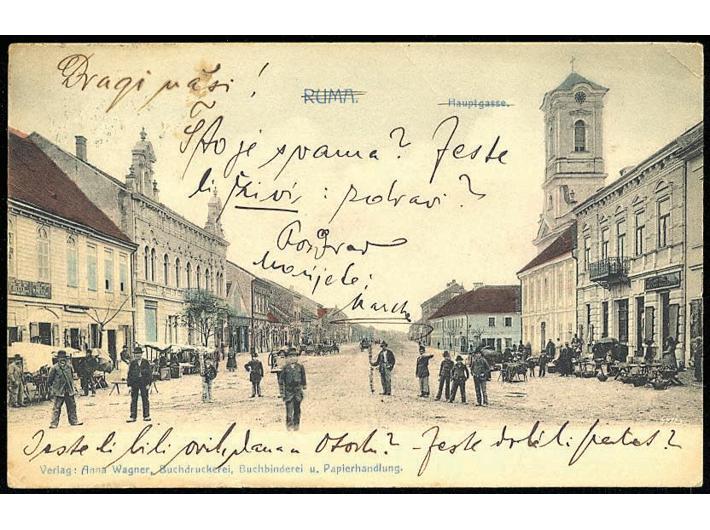 Dragi naši!
RUMA.
Hauptgasse.
Što je s vama? Jeste
li živi i zdravi?
Pozdrav
Marka
Jeste li bili ovih dana u Otoku? - Jeste dobili petat?
Verlag: Anna Wagner, Buchdruckerei, Buchbinderei u. Papierhandlung.